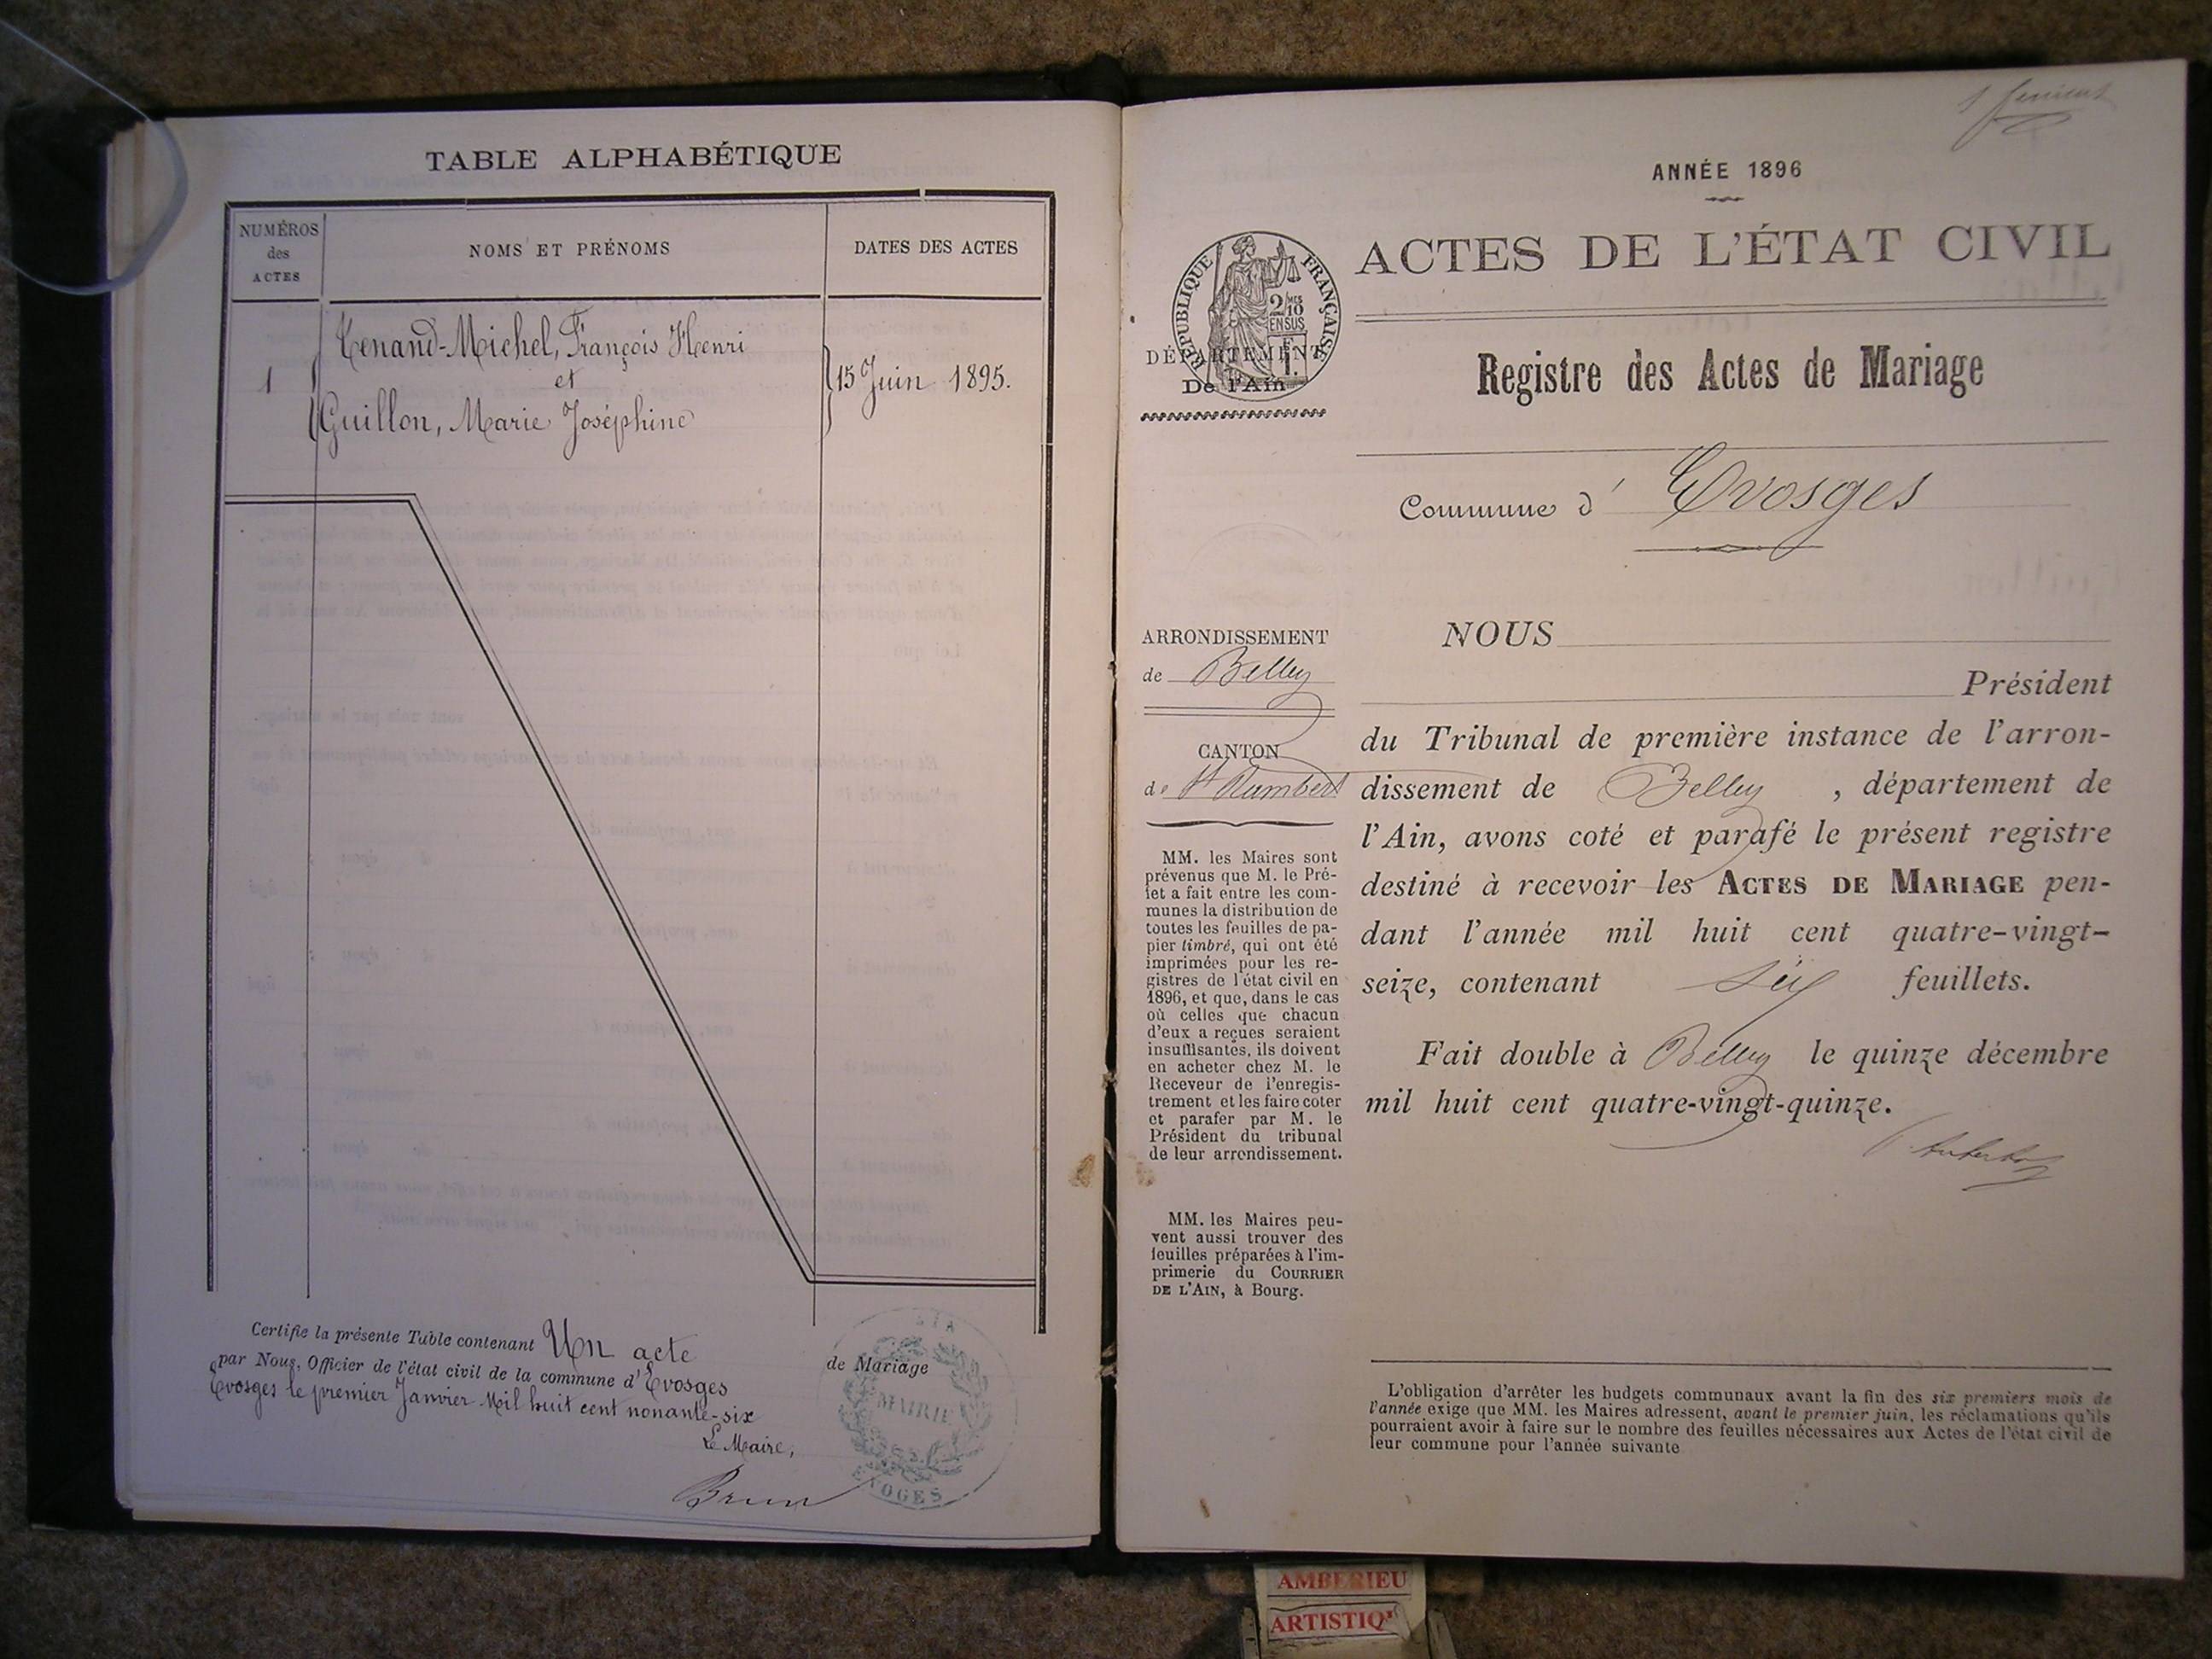 TABLE ALPHABÉTIQUE
NUMÉROS
des
ACTES
NOMS ET PRÉNOMS
DATES DES ACTES
Tenand-Michel, François Henri
et
1
15 Juin 1895.
Guillon, Marie Joséphine
Certifie la présente Table contenant Un acte de Mariage
par Nous, Officier de l'état civil de la commune d'Evosges
Evosges le premier Janvier Mil huit cent nonante-six
Le Maire,
Brun
MAIRIE
ANNÉE 1896
RÉPUBLIQUE FRANÇAISE
2/10
EN SUS
ACTES DE L'ÉTAT CIVIL
DÉPARTEMENT
De l'Ain
Registre des Actes de Mariage
Commune d' Evosges
ARRONDISSEMENT
de Belley
CANTON
de St Rambert
MM. les Maires sont
prévenus que M. le Pré-
fet a fait entre les com-
munes la distribution de
toutes les feuilles de pa-
pier timbré, qui ont été
imprimées pour les re-
gistres de l'état civil en
1896, et que, dans le cas
où celles que chacun
d'eux a reçues seraient
insuffisantes, ils doivent
en acheter chez M. le
Receveur de l'enregis-
trement et les faire coter
et parafer par M. le
Président du tribunal
de leur arrondissement.
MM. les Maires peu-
vent aussi trouver des
feuilles préparées à l'im-
primerie du COURRIER
DE L'AIN, à Bourg.
NOUS
Président
du Tribunal de première instance de l'arron-
dissement de Belley, département de
l'Ain, avons coté et parafé le présent registre
destiné à recevoir les ACTES DE MARIAGE pen-
dant l'année mil huit cent quatre-vingt-
seize, contenant six feuillets.
Fait double à Belley le quinze décembre
mil huit cent quatre-vingt-quinze.
L'obligation d'arrêter les budgets communaux avant la fin des six premiers mois de
l'année exige que MM. les Maires adressent, avant le premier juin, les réclamations qu'ils
pourraient avoir à faire sur le nombre des feuilles nécessaires aux Actes de l'état civil de
leur commune pour l'année suivante
AMBERIEU
ARTISTIQ'